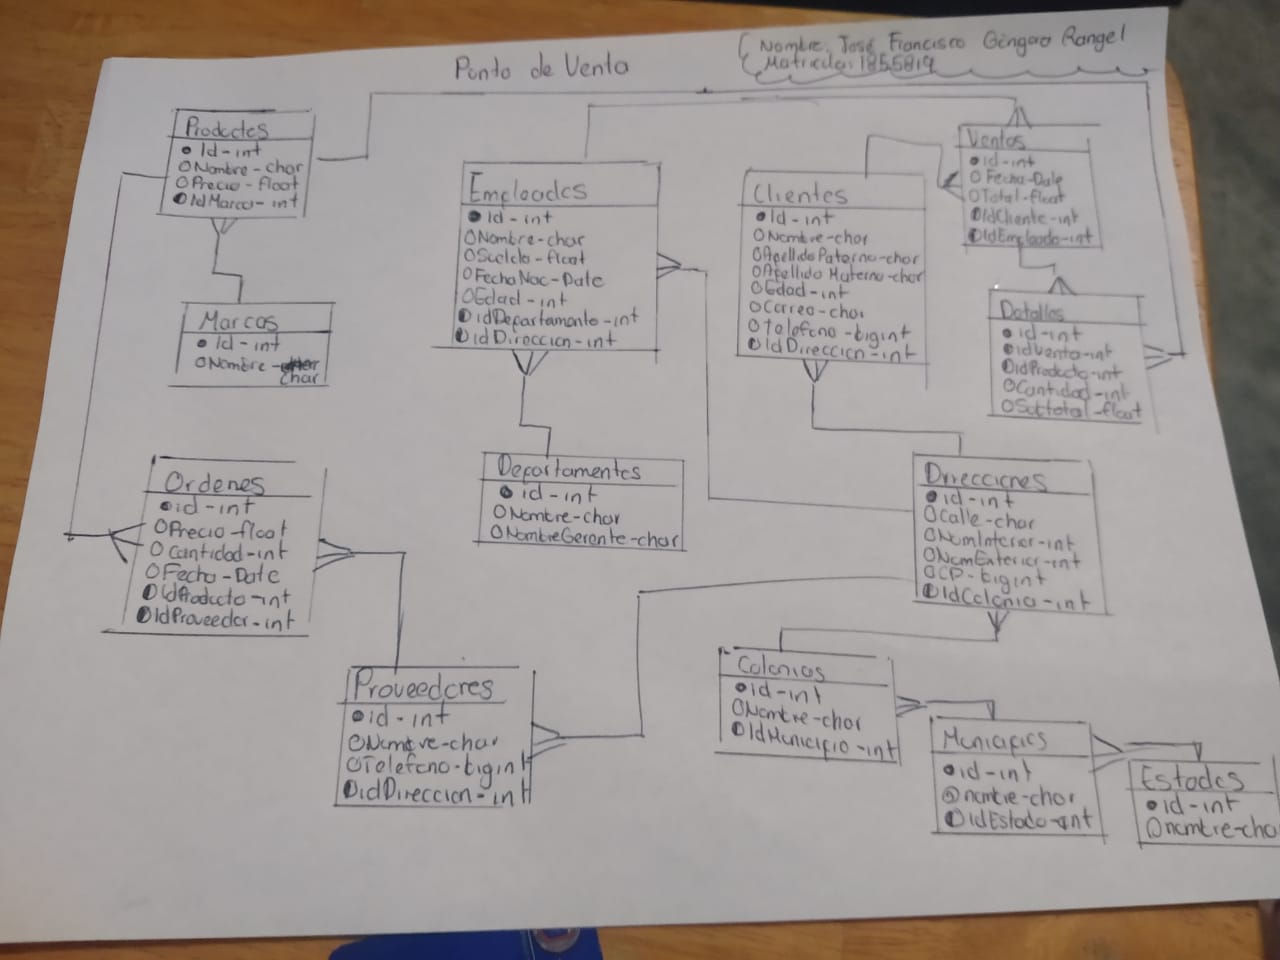 Punto de Venta
Nombre: José Francisco Góngora Rangel
Matricula: 1855819
Productos
Id-int
Nombre-char
Precio-float
IdMarca-int
Marcas
Id-int
Nombre-
char
Empleados
Id-int
Nombre-char
Sueldo-float
FechaNac-Date
Edad-int
idDepartamento-int
IdDireccion-int
Clientes
Id-int
Nombre-char
Apellido Paterno-char
Apellido Materno-char
Edad-int
Correo-char
Telefono-bigint
IdDireccion-int
Ventas
id-int
Fecha-Date
Total-float
IdCliente-int
IdEmpleado-int
Detalles
id-int
idVenta-int
idProducto-int
Cantidad-int
Subtotal-float
Ordenes
id-int
Precio-float
Cantidad-int
Fecha-Date
IdProducto-int
IdProveedor-int
Departamentos
id-int
Nombre-char
NombreGerente-char
Direcciones
id-int
Calle-char
NumInterior-int
NumExterior-int
CP-bigint
IdColonia-int
Proveedores
id-int
Nombre-char
Telefono-bigint
idDireccion-int
Colonias
id-int
Nombre-char
IdMunicipio-int
Municipios
id-int
nombre-char
IdEstado-int
Estados
id-int
nombre-cha